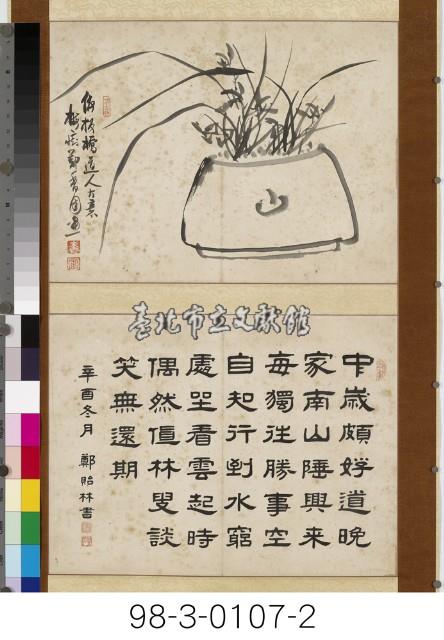 倣板橋道人大意
鄭香圃畫
臺北市立文獻館
中歲頗好道晚
家南山陲興來
每獨往勝事空
自知行到水窮
處坐看雲起時
偶然值林叟談
笑無還期
辛酉冬月 鄭貽林書
98-3-0107-2